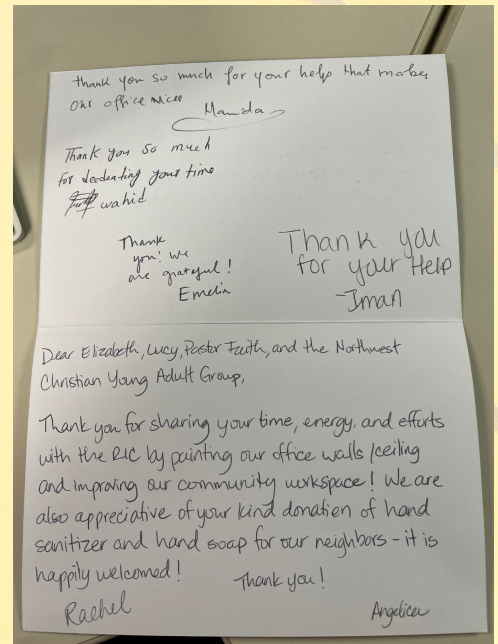 thank you so much for your help that makes
our office nice
Thank you so much
for dedenting your time
wahid
Thank
you! We
are grateful!
Emelia
Thank you
for your Help
-Iman
Dear Elizabeth, Lucy, Pastor Faith, and the Northwest
Christian Young Adult Group,
Thank you for sharing your time, energy, and efforts
with the RIC by painting our office walls/ceiling
and improving our community workspace! We are
also appreciative of your kind donation of hand
sanitizer and hand soap for our neighbors - it is
happily welcomed!
Thank you!
Rachel
Angelica